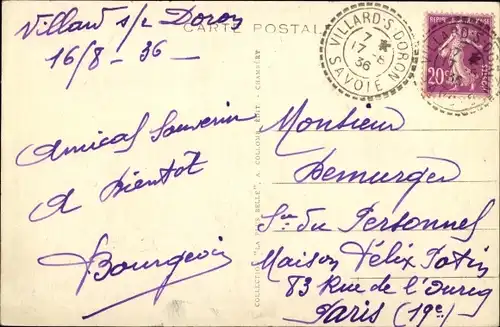 Villard s/ Doron
16/8 - 36 -
CARTE POSTALE
VILLARD-S-DORON
7 *
17 - 8
36
SAVOIE
20
Amical Souvenir
A Bientôt
Bourgeois
COLLECTION "LA PLUS BELLE", A. COLLOMB, ÉDIT. - CHAMBÉRY
Monsieur
Demurger
Ser du Personnel
Maison Félix Potin
83 Rue de l'Ourcq
Paris (19e)